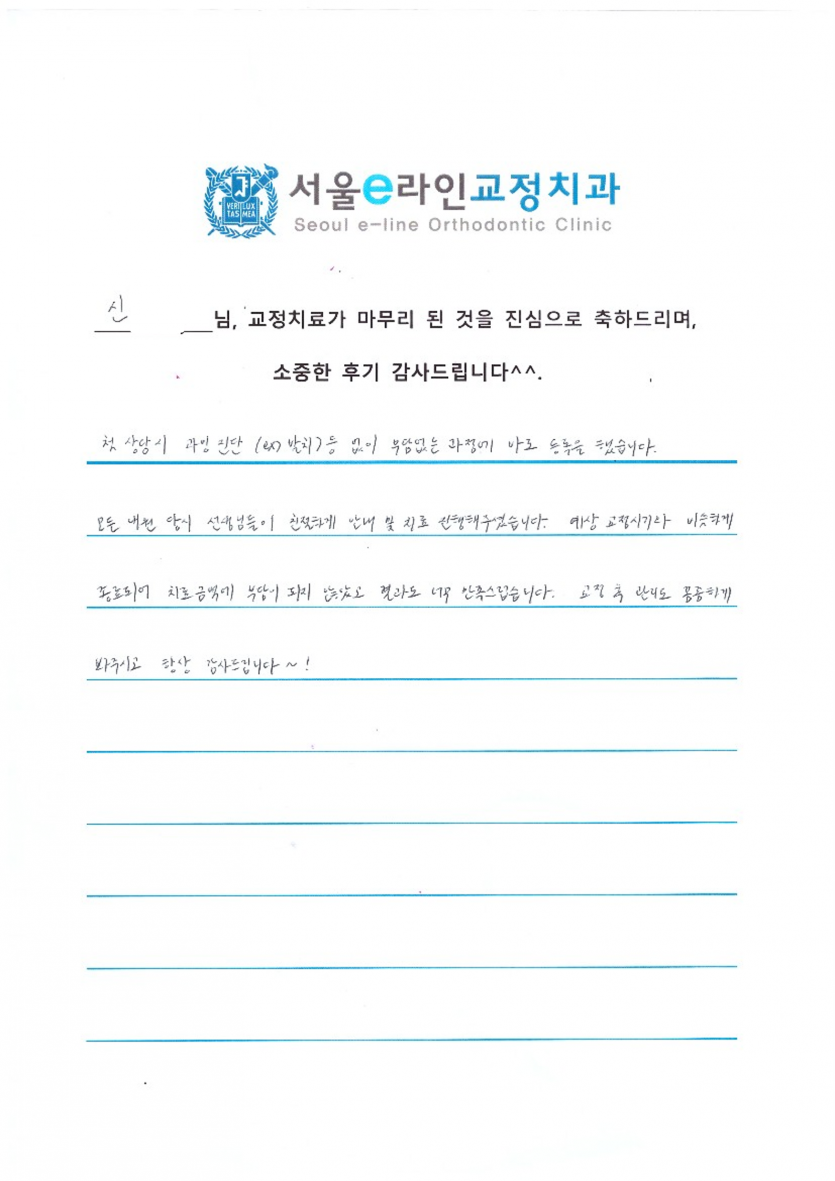 VERI LUX
TAS MEA
서울e라인교정치과
Seoul e-line Orthodontic Clinic
신 님, 교정치료가 마무리 된 것을 진심으로 축하드리며,
소중한 후기 감사드립니다^^.
첫 상담시 과잉 진단 (ex) 발치) 등 없이 부담없는 과정에 바로 등록을 했습니다.
모든 내원 당시 선생님들이 친절하게 안내 및 치료 진행해주셨습니다. 예상 교정시기와 비슷하게
종료되어 치료금액에 부담이 되지 않았고 결과도 너무 만족스럽습니다. 교정 후 관리도 꼼꼼하게
봐주시고 항상 감사드립니다~!